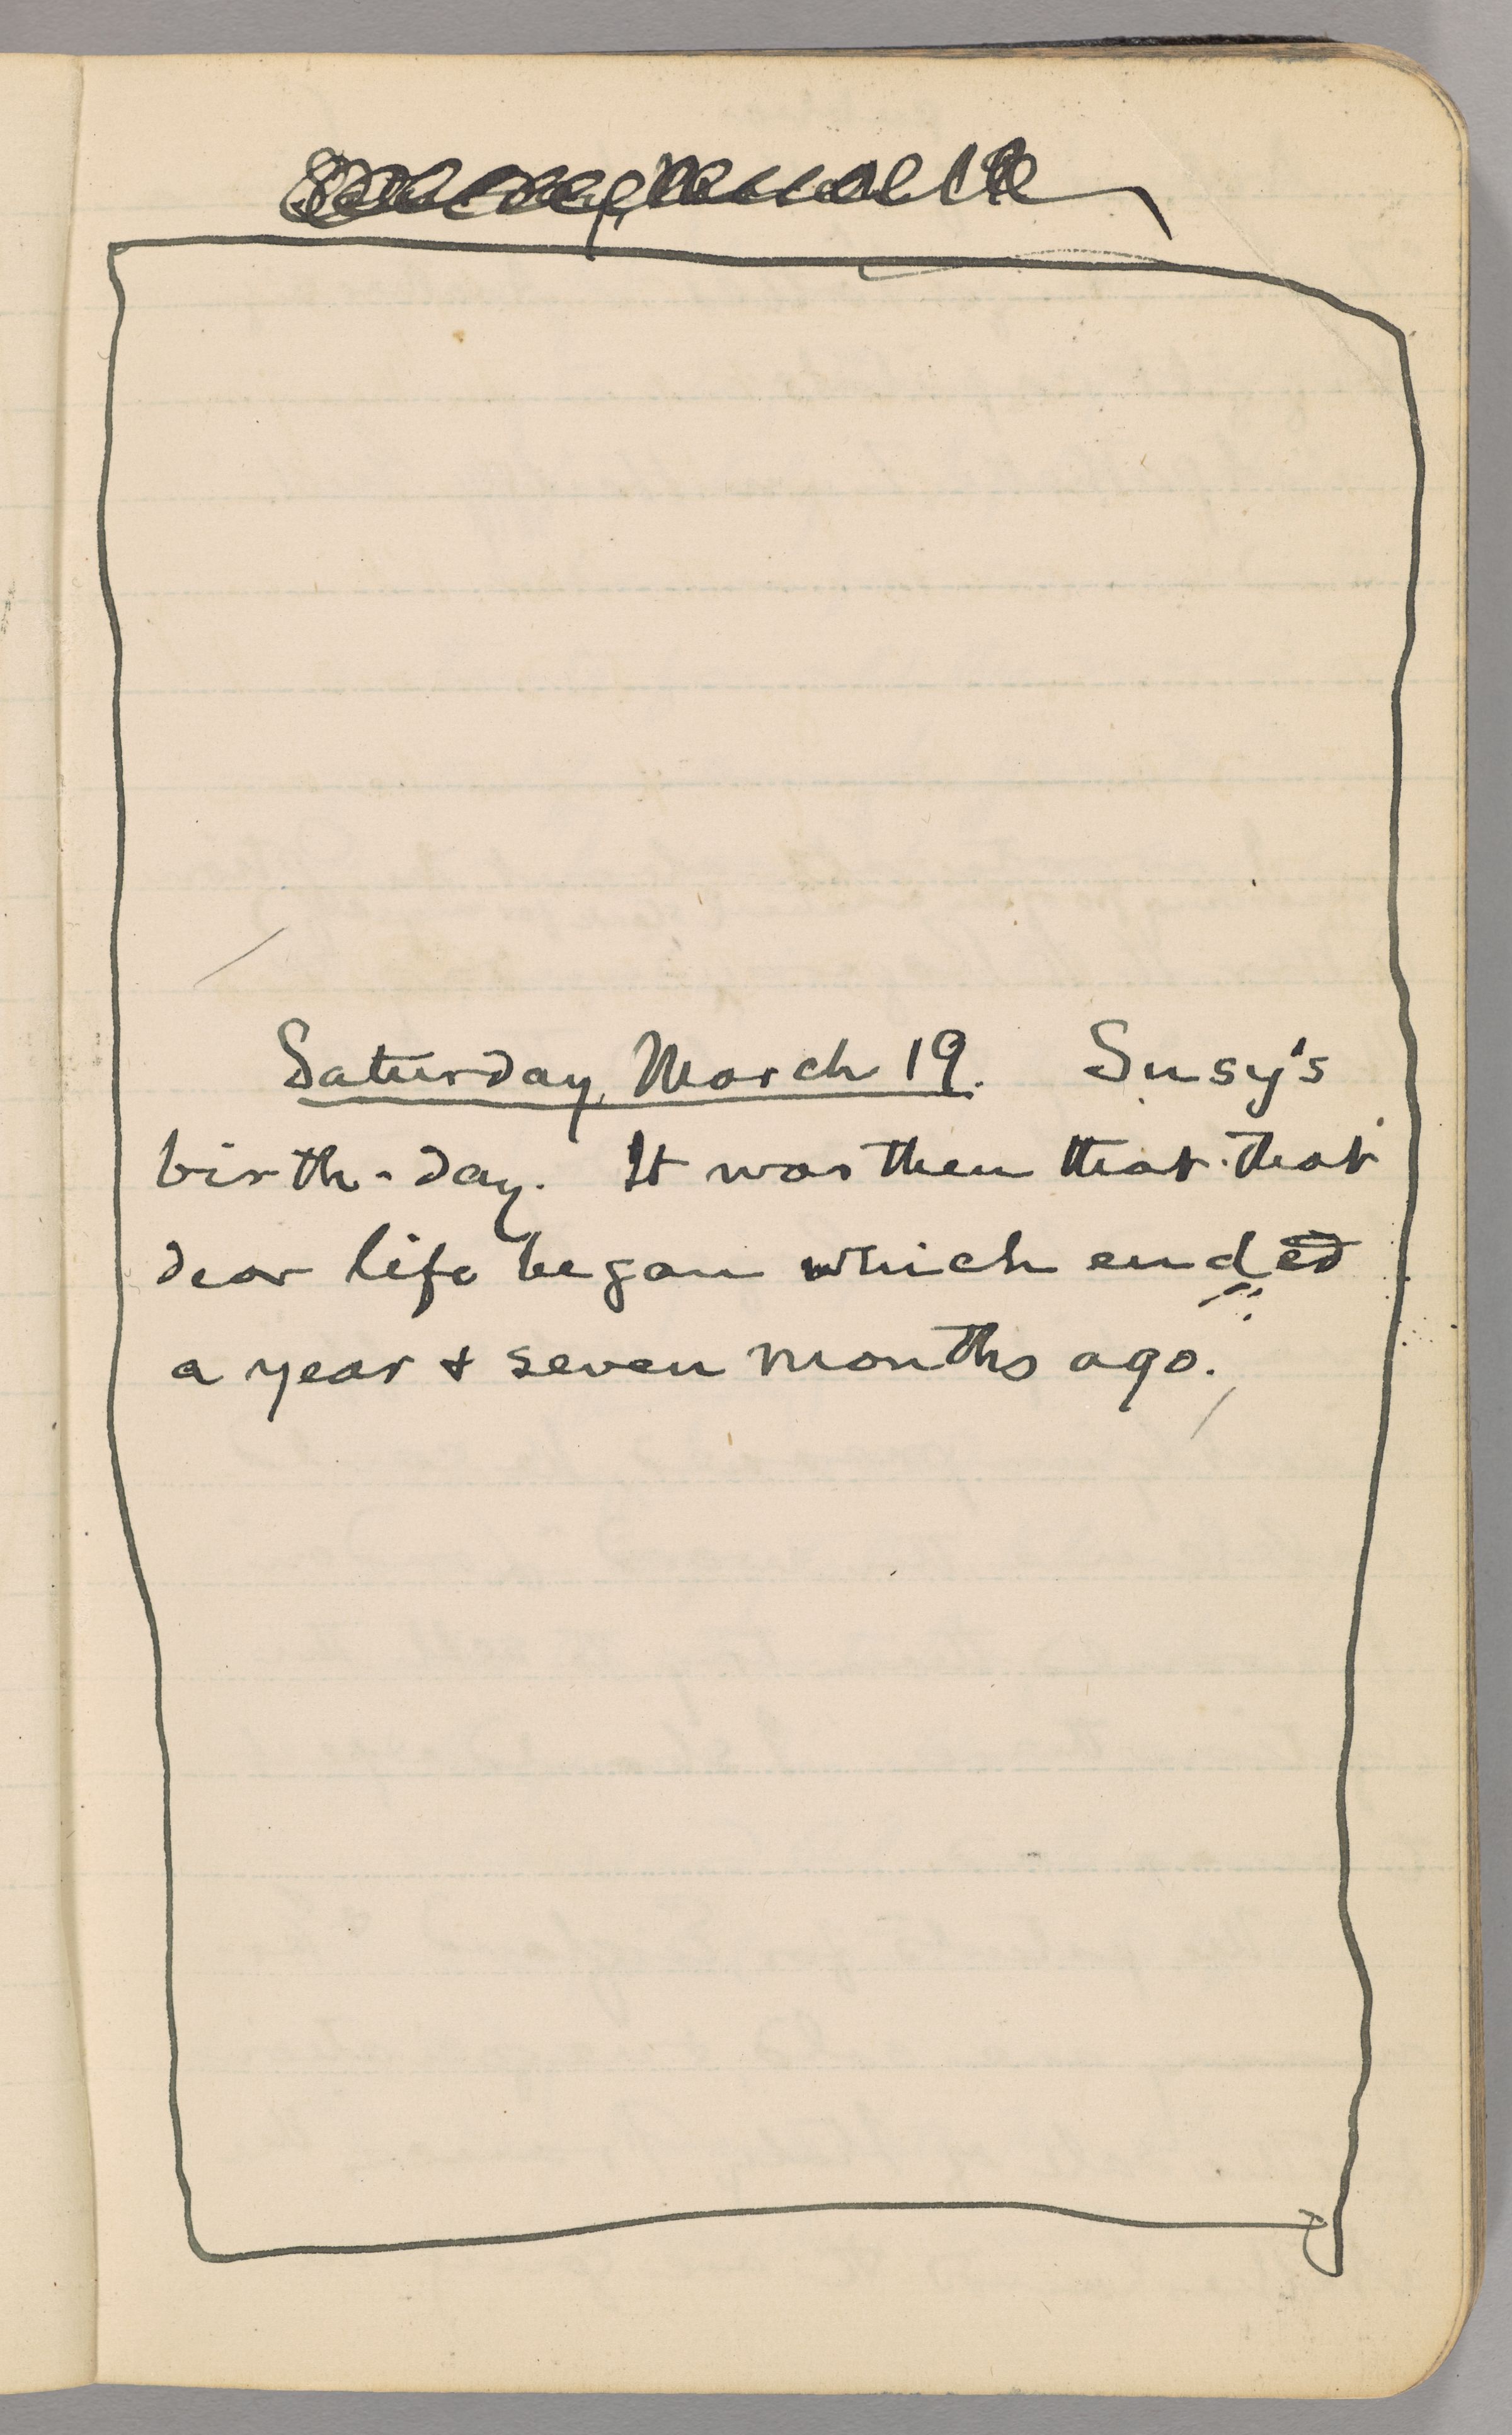 Saturday, March 19. Susy's
birth-day. It was then that that
dear life began which ended
a year & seven months ago.